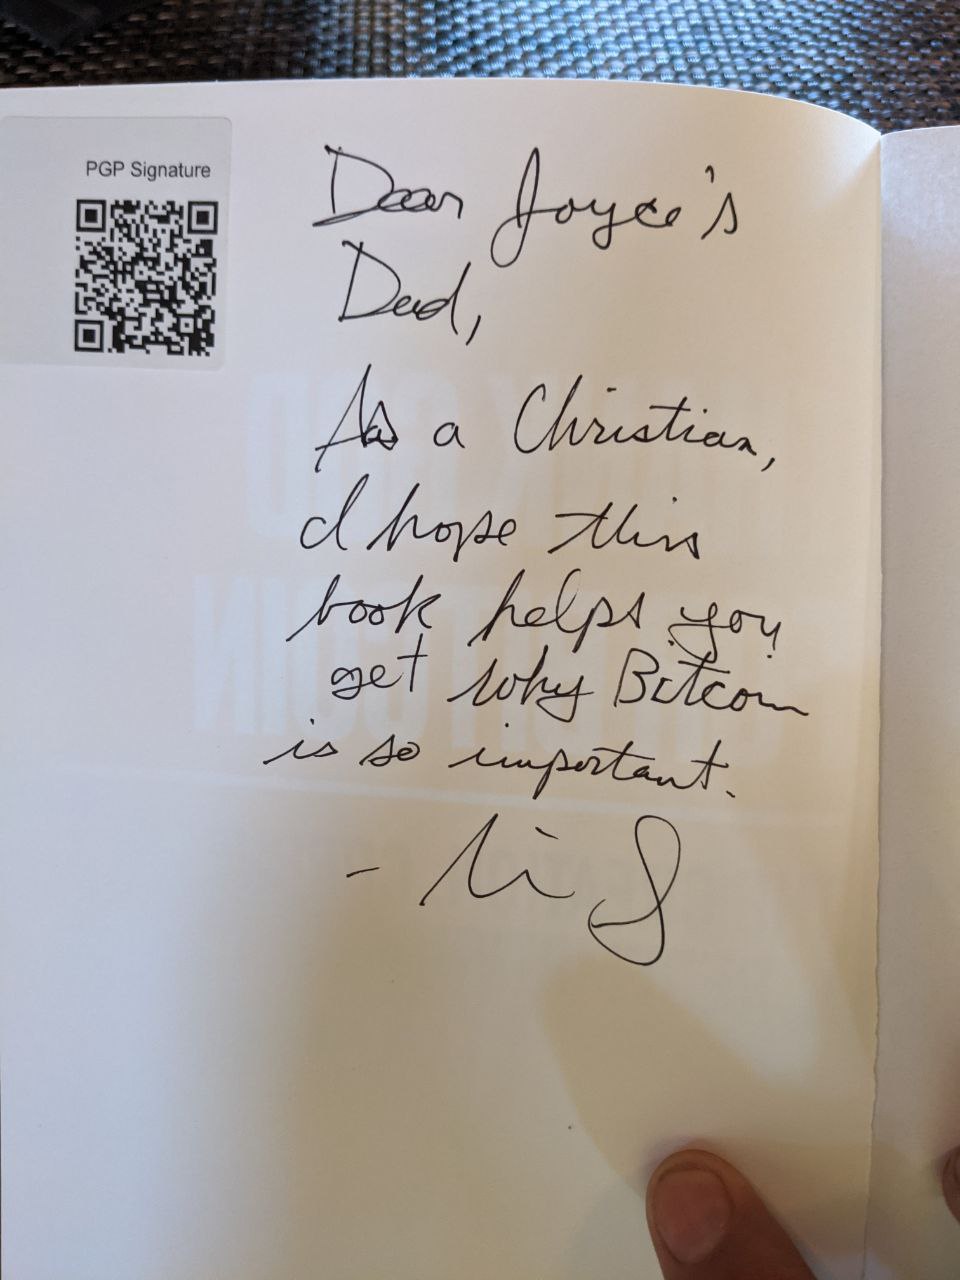 PGP Signature
Dear Joyce's
Dad,
As a Christian,
I hope this
book helps you
get why Bitcoin
is so important.